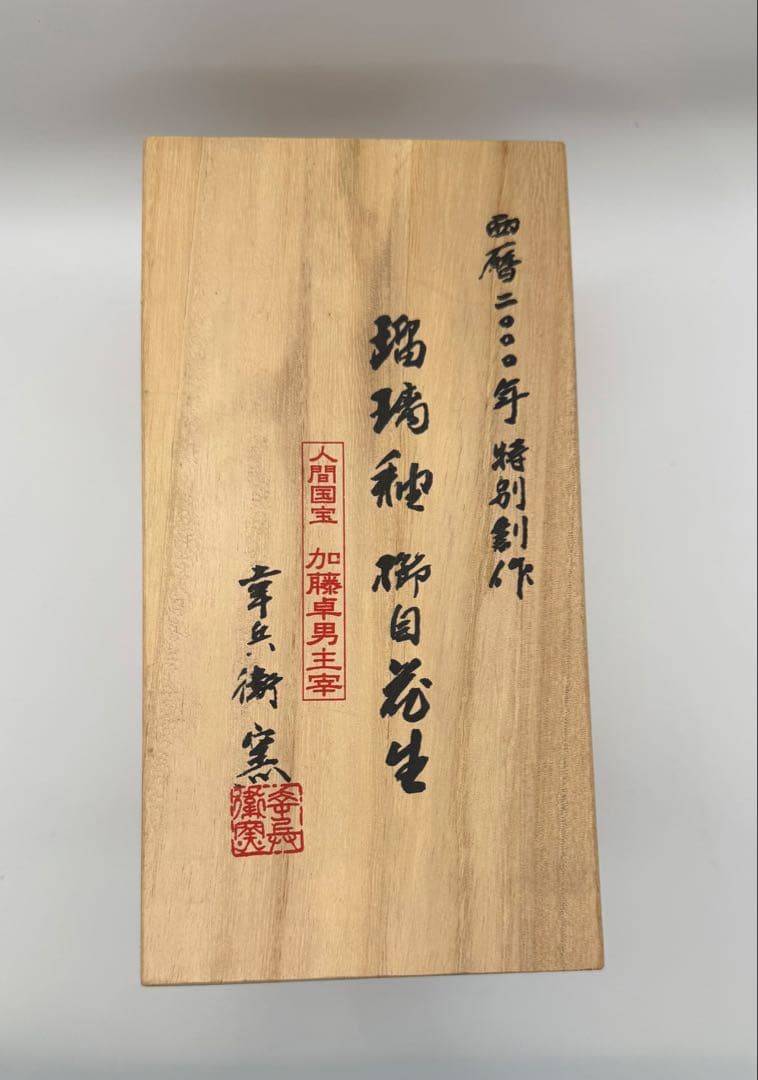 西暦二〇〇〇年 特別創作
瑠璃釉 櫛目花生
人間国宝 加藤卓男主宰
幸兵衛窯
幸兵衛窯